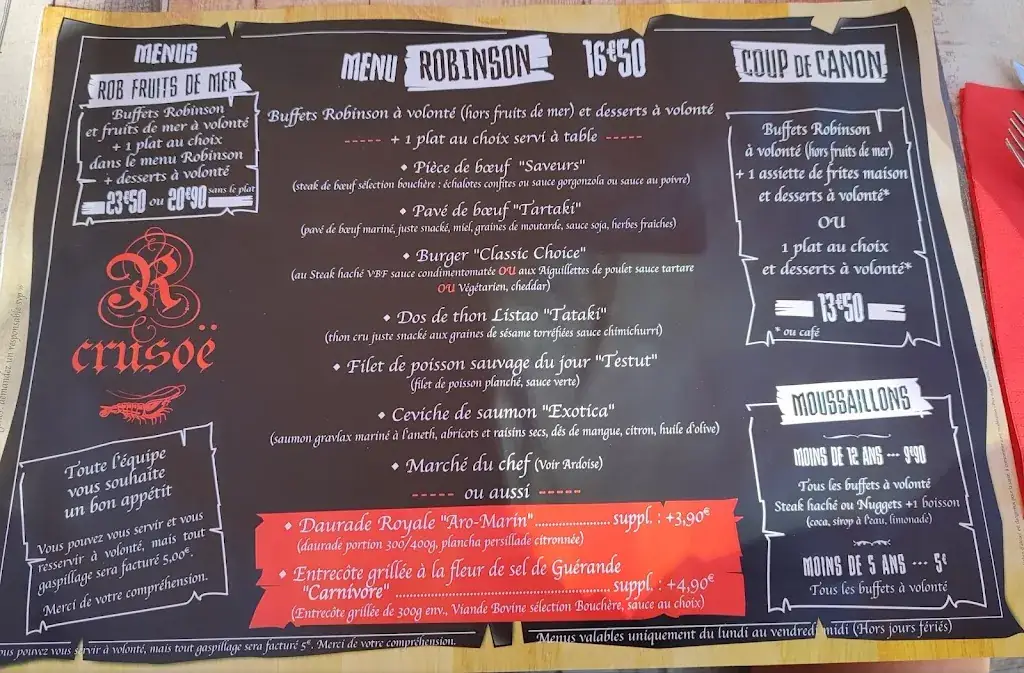 MENUS
ROB FRUITS DE MER
Buffets Robinson
et fruits de mer à volonté
+ 1 plat au choix
dans le menu Robinson
+ desserts à volonté
23€50 ou 20€90 sans le plat
R
crusoë
Toute l'équipe
vous souhaite
un bon appétit
Vous pouvez vous servir et vous
resservir à volonté, mais tout
gaspillage sera facturé 5,00€.
Merci de votre compréhension.
MENU ROBINSON 16€50
Buffets Robinson à volonté (hors fruits de mer) et desserts à volonté
----- + 1 plat au choix servi à table -----
◆ Pièce de bœuf "Saveurs"
(steak de bœuf sélection bouchère : échalotes confites ou sauce gorgonzola ou sauce au poivre)
◆ Pavé de bœuf "Tartaki"
(pavé de bœuf mariné, juste snacké, miel, graines de moutarde, sauce soja, herbes fraiches)
◆ Burger "Classic Choice"
(au Steak haché VBF sauce condimentomatée OU aux Aiguillettes de poulet sauce tartare
OU Végétarien, cheddar)
◆ Dos de thon Listao "Tataki"
(thon cru juste snacké aux graines de sésame torréfiées sauce chimichurri)
◆ Filet de poisson sauvage du jour "Testut"
(filet de poisson planché, sauce verte)
◆ Ceviche de saumon "Exotica"
(saumon gravlax mariné à l'aneth, abricots et raisins secs, dés de mangue, citron, huile d'olive)
◆ Marché du chef (Voir Ardoise)
----- ou aussi -----
◆ Daurade Royale "Aro-Marin"...................... suppl. : +3,90€
(daurade portion 300/400g, plancha persillade citronnée)
◆ Entrecôte grillée à la fleur de sel de Guérande
"Carnivore" .................................................. suppl. : +4,90€
(Entrecôte grillée de 300g env., Viande Bovine sélection Bouchère, sauce au choix)
COUP DE CANON
Buffets Robinson
à volonté (hors fruits de mer)
+ 1 assiette de frites maison
et desserts à volonté*
OU
1 plat au choix
et desserts à volonté*
13€50
* ou café
MOUSSAILLONS
MOINS DE 12 ANS --- 9€90
Tous les buffets à volonté
Steak haché ou Nuggets +1 boisson
(coca, sirop à l'eau, limonade)
MOINS DE 5 ANS --- 5€
Tous les buffets à volonté
ous pouvez vous servir à volonté, mais tout gaspillage sera facturé 5€. Merci de votre compréhension.
Menus valables uniquement du lundi au vendredi midi (Hors jours fériés)
demandez un responsable svp